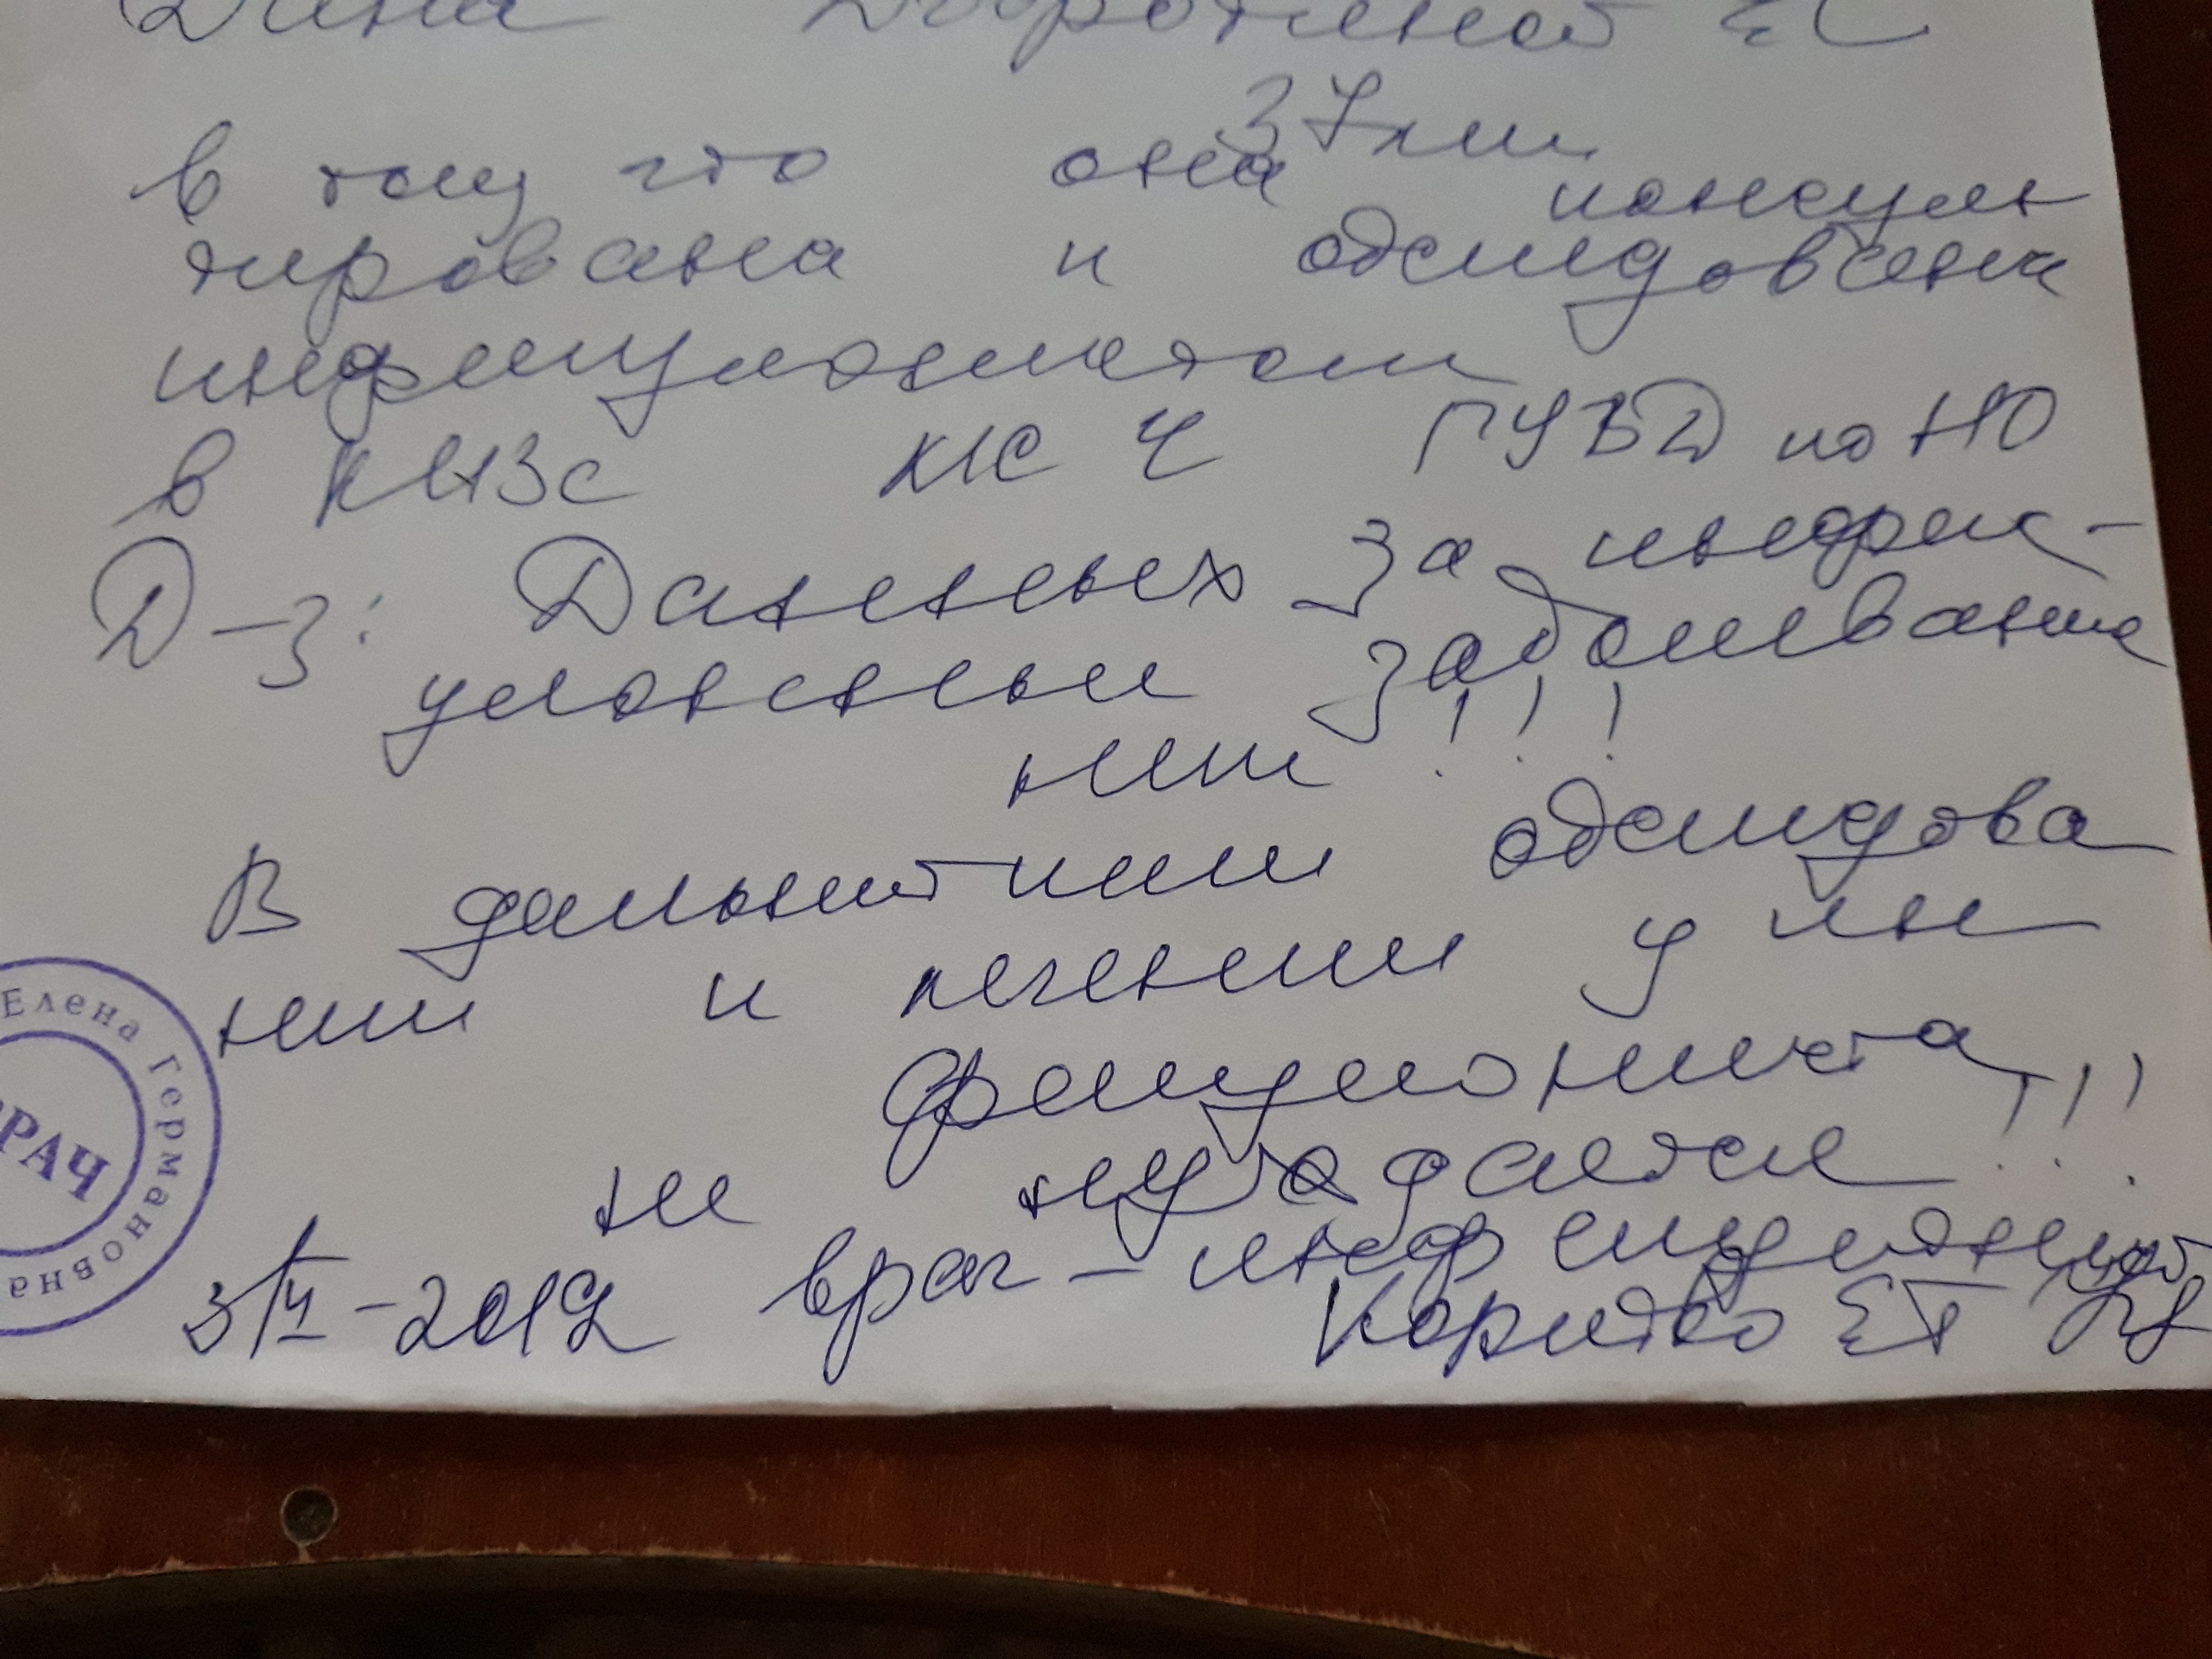 Дана Дюротиной ЕС
37 лет
в том что она консуль
тирована и обследована
инфекционистом
в КИЗе МСЧ ГУВД по НО
Д-з: Данных за инфек-
ционные заболевание
нет!!!
В дальнейшем обследова
нии и лечении у ин
фекциониста!!!
не нуждается
3/VI-2019г врач-инфекционист
Коритко ЕГ
Елена Германовна
ВРАЧ